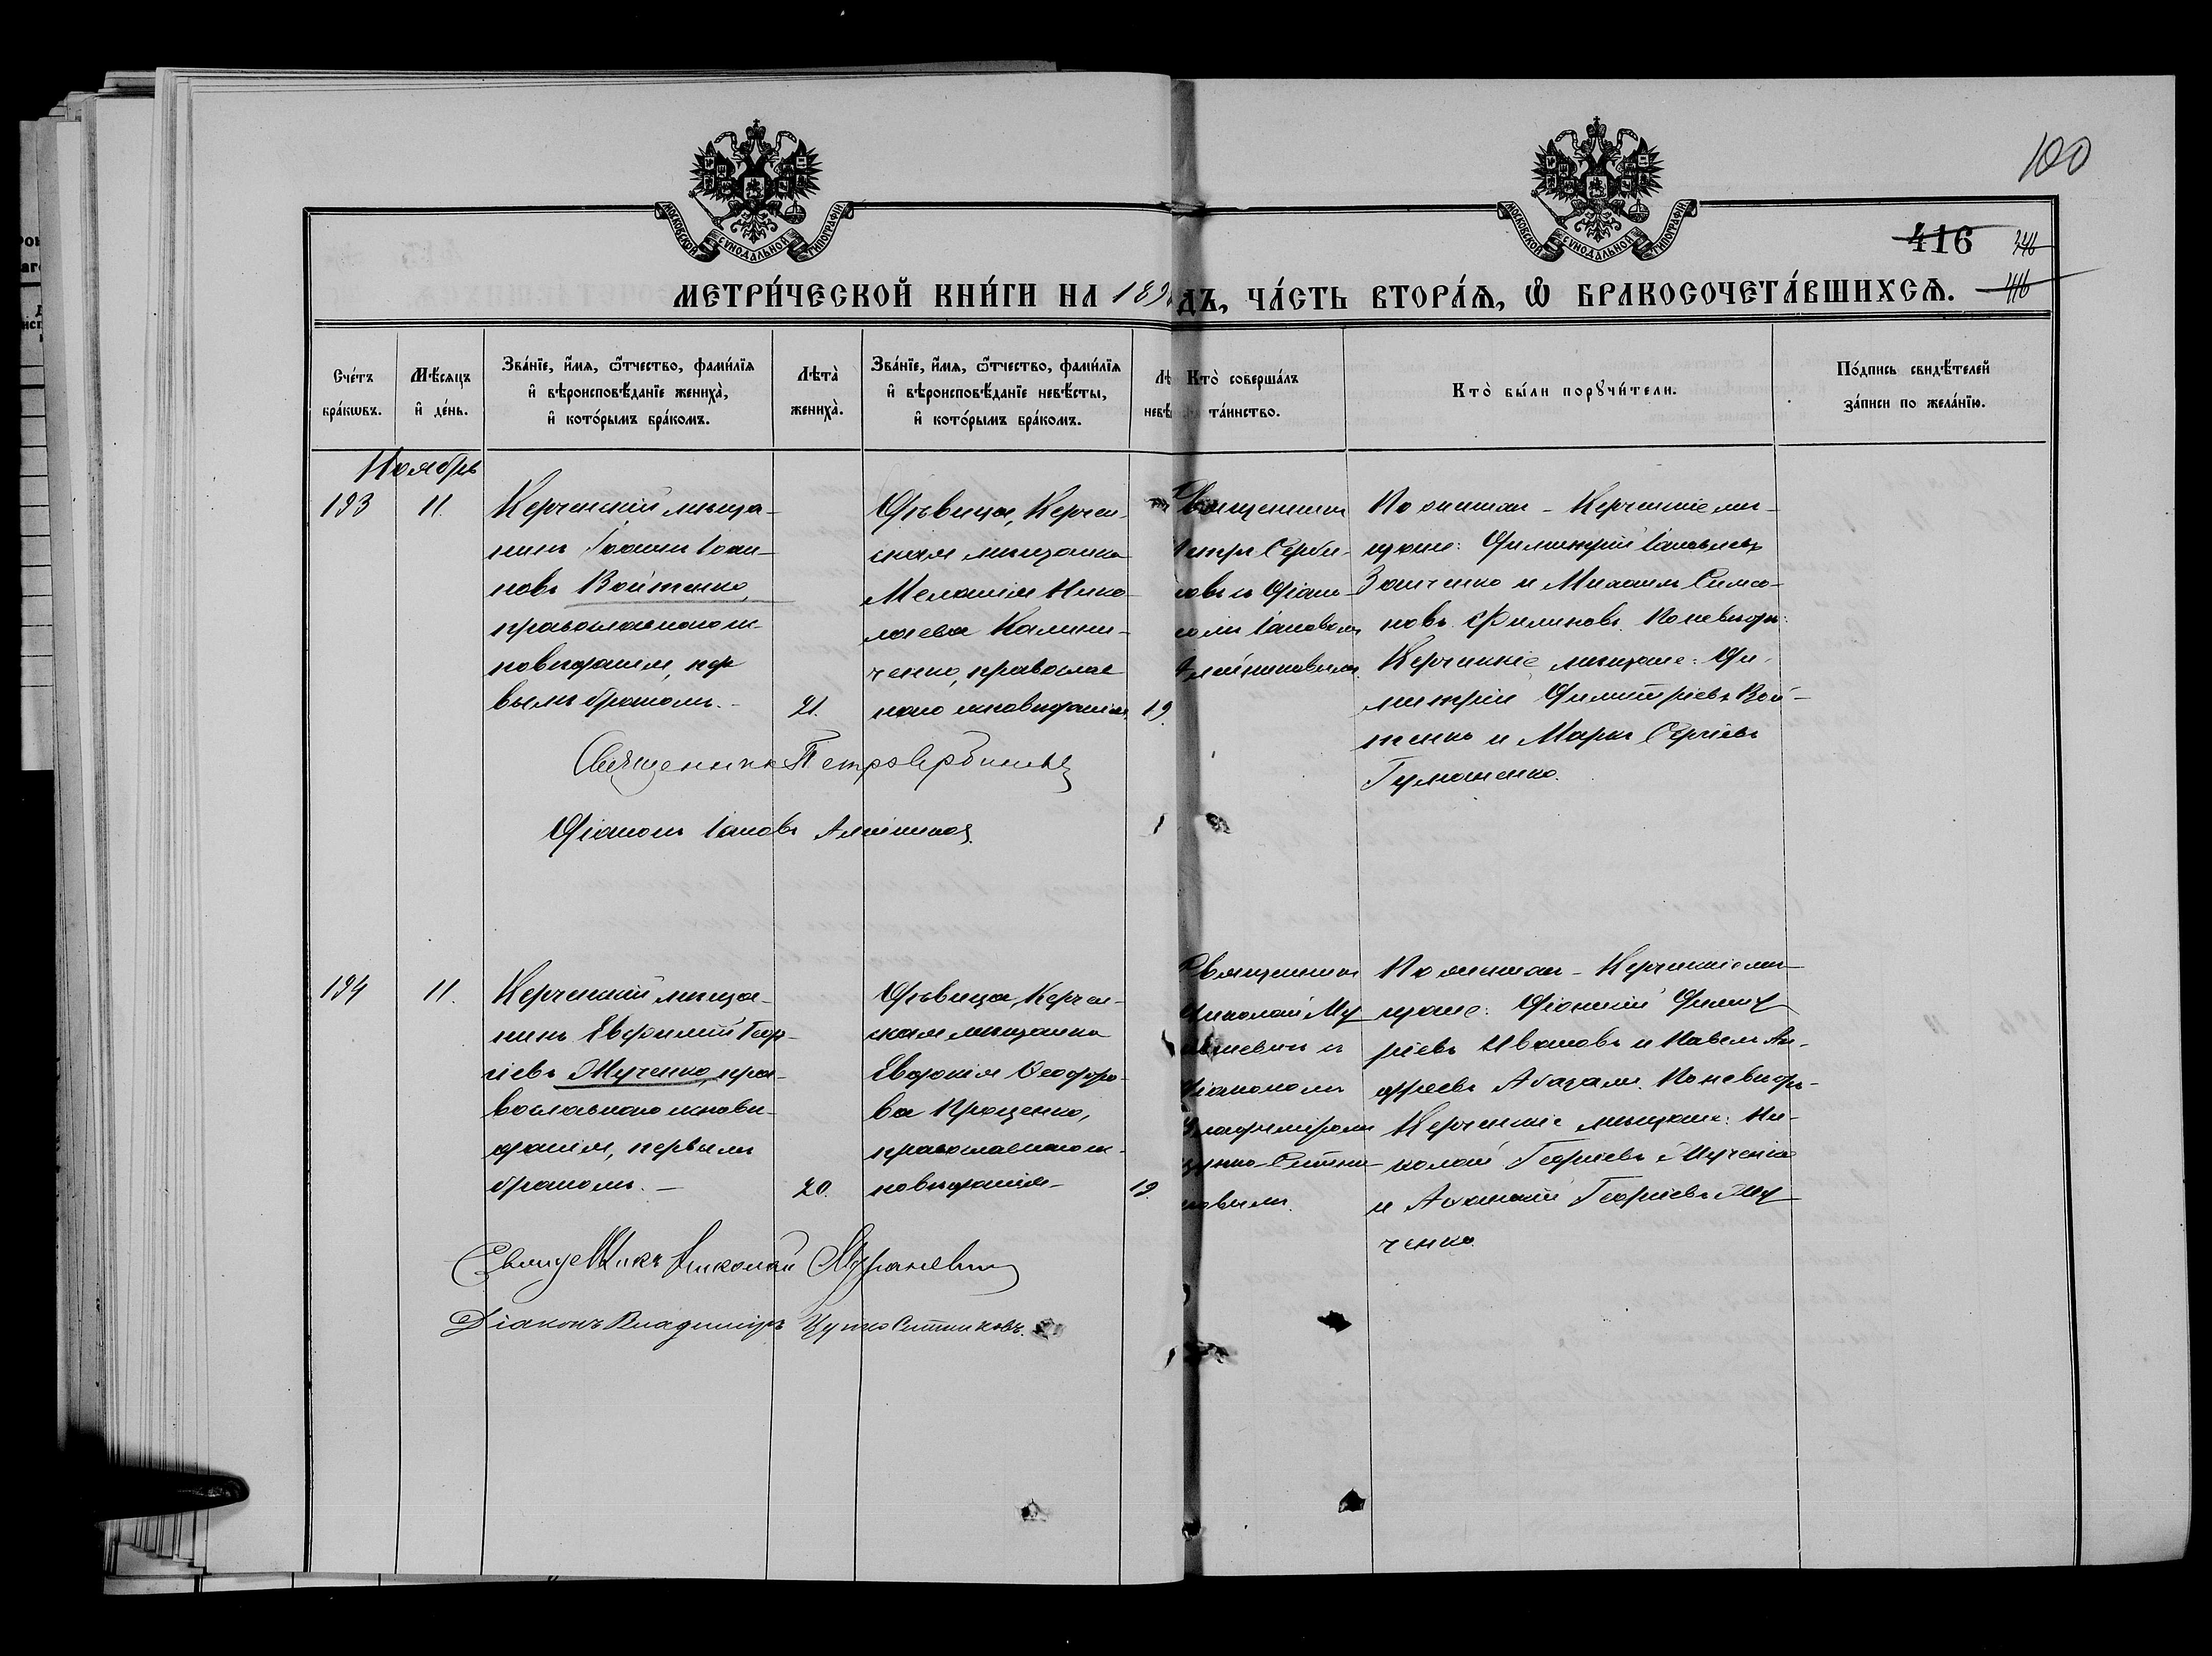 100
416 346
416
МОСКОВСКОЙ СѴНОДАЛЬНОЙ ТИПОГРАФІИ.
МОСКОВСКОЙ СѴНОДАЛЬНОЙ ТИПОГРАФІИ.
МЕТРИ́ЧЕСКОЙ КНИ́ГИ НА 189 ДЪ, ЧА́СТЬ ВТОРА́Я, Ѽ БРАКОСОЧЕТА́ВШИХСѦ.
Сче́тъ
бра́кѡвъ.
Мѣ́сяцъ
и҆ де́нь.
Зва́нїе, и҆́мя, ѻ҆́тчество, фами́лїя
и҆ вѣроисповѣ́данїе жениха̀,
и҆ кото́рымъ бра́комъ.
Лѣта̀
жениха̀.
Зва́нїе, и҆́мя, ѻ҆́тчество, фами́лїя
и҆ вѣроисповѣ́данїе невѣ́сты,
и҆ кото́рымъ бра́комъ.
Лѣ
невѣ
Кто̀ соверша́лъ
та́инство.
Кто̀ бы́ли порꙋчи́тели.
По́дпись свидѣ́телей
за́писи по жела́нїю.
Ноябрь
193
11.
Керченскій мѣща-
нинъ Іоаннъ Іоан-
новъ Войтенко,
православнаго ис-
повѣданія, пер
вымъ бракомъ.-
21.
Дѣвица, Керчен-
ская мѣщанка
Меланія Нико-
лаева Калини-
ченко, православ
наго исповѣданія
19.
Священникъ
Петръ Серби-
новъ съ Діако-
номъ Іаковомъ
Алейниковымъ.
По женихѣ - Керченскіе мѣ-
щане: Димитрій Іаковлевъ
Заиченко и Михаилъ Симо-
новъ Филиновъ. По невѣстѣ:
Керченскіе мѣщане: Ди-
митрій Димитріевъ Вой-
тенко и Маркъ Сергіевъ
Священникъ Петръ Сербиновъ
Діаконъ Іаковъ Алейниковъ.
194
11.
Керченскій мѣща-
нинъ Евфимій Геор-
гіевъ Мученко, пра-
вославнаго исповѣ-
данія, первымъ
бракомъ. —
20.
Дѣвица, Керчен-
ская мѣщанка
Евдокія Ѳеодоро-
ва Проценко,
православнаго ис-
повѣданія-
19.
Священникъ
Николай Му
раневичъ съ
Діакономъ
Владимиромъ
Цунко-Ситни
ковымъ.
По женихѣ - Керченскіе мѣ-
щане: Діонисій Димит
ріевъ Ивановъ и Павелъ Ан-
дреевъ Абазали. По невѣстѣ-
Керченскіе мѣщане: Ни-
колай Георгіевъ Мученко
и Аѳанасій Георгіевъ Му
ченко.
Священникъ Николай Мураневичъ
Діаконъ Владимиръ Цунко Ситниковъ.